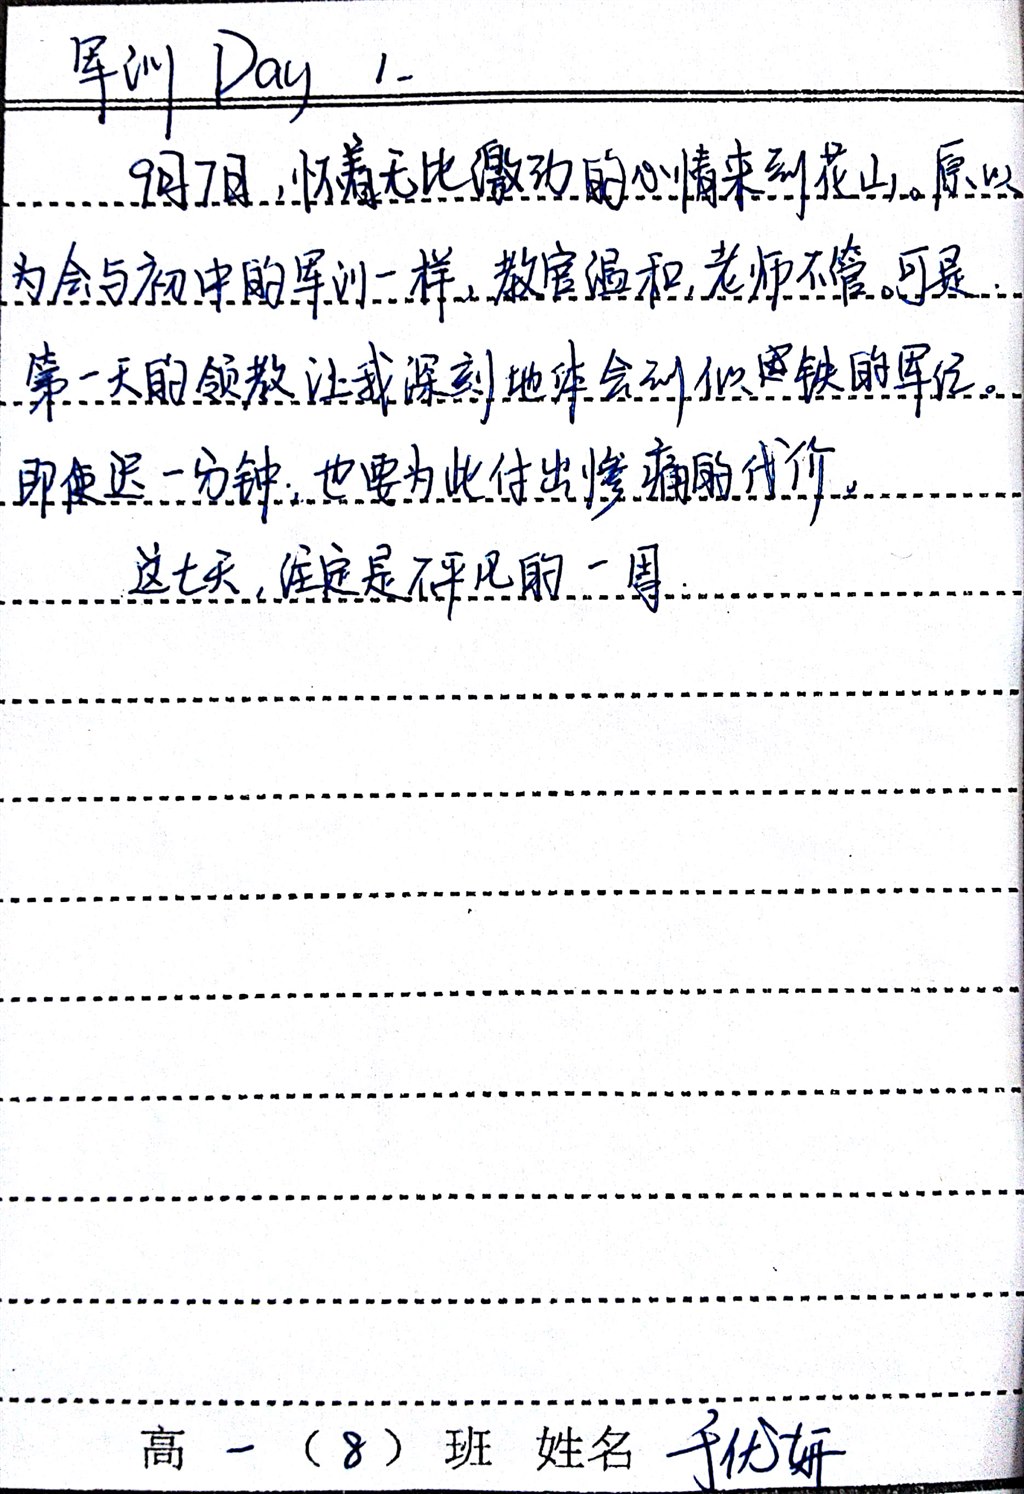 军训 Day 1.
9月7日，怀着无比激动的心情来到花山。原以
为会与初中的军训一样，教官温和，老师不管。可是
第一天的领教让我深刻地体会到似铁的军纪。
即使迟一分钟，也要为此付出惨痛的代价。
这七天，注定是不平凡的一周.
高一（8）班 姓名 于优妍